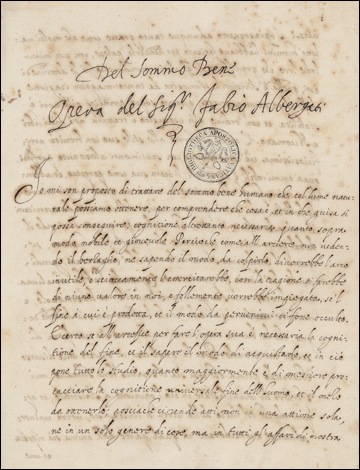 Del sommo Bene
Opera del Sigr Fabio Albergati
BIBLIOTECA APOSTOLICA VATICANA
Io mi son proposto di trattare del sommo bene humano che col lume natu-
rale possiamo ottenere, per comprendere che cosa è et in che guisa si
possa conseguire; cognitione altrettanto necessaria, quanto sopra
modo nobile et giovevole. Percioche come all'arciere non veden-
do il bersaglio, ne sapendo il modo da colpirlo, diverrebbe l'arco
inutile, e scioccamente l'
di niuno valore in noi, e follemente verrebbe impiegata, se 'l
fine à cui è prodotta, et il modo da pervenirvi ci fosse occulto.
Et certo se all'artefice per fare l'opera sua è necessaria la cogni-
tione del fine, et il sapere il modo di acquistarlo, et in ciò
pone tutto lo studio, quanto maggiormente è di mestiere pro-
cacciare la cognitione universale fine dell'huomo, et il modo
da ottenerlo, posciache attiene atti non in una attione sola,
ne in un solo genere di cose, ma in tutti gli affari di nostra